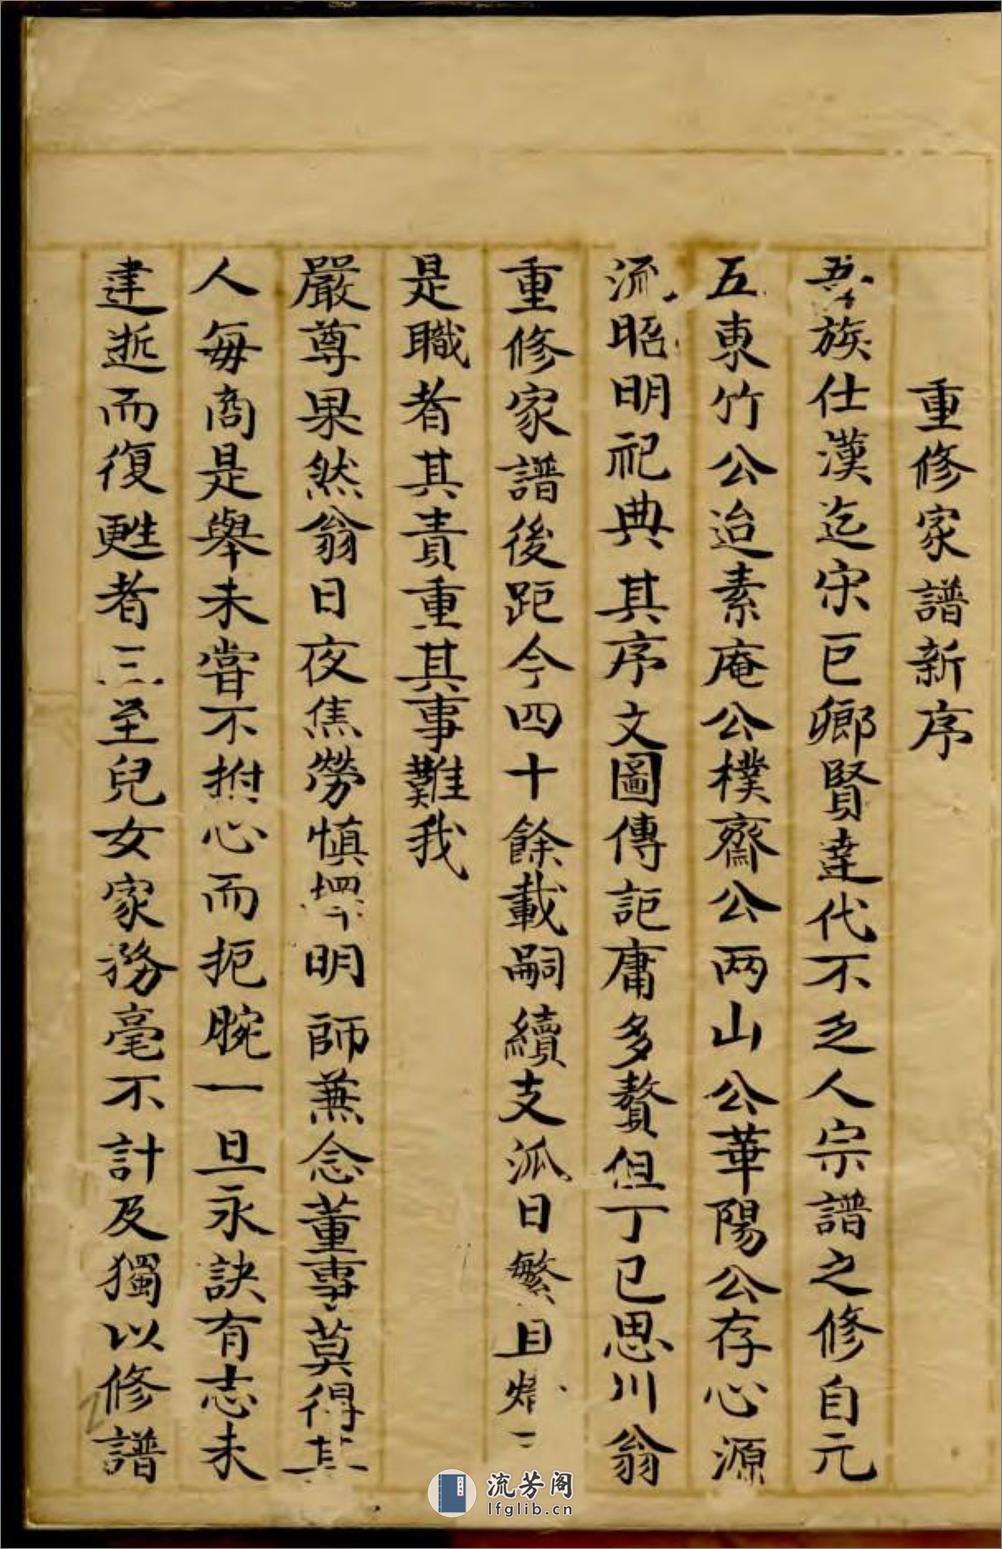 重修家譜新序
吾族仕漢迄宋巳鄉賢達代不乏人宗譜之修自元
五東竹公迨素庵公樸齋公两山公華陽公存心源
流昭明祀典其序文圖傳記庸多贅但丁巳思川翁
重修家譜後距今四十餘載嗣續支派日繁且
是職者其責重其事難我
嚴尊果然翁日夜焦勞慎擇明師兼念董事莫得其
人每商是舉未嘗不拊心而扼腕一旦永訣有志未
逮逝而復甦者三至兒女家務毫不計及獨以修譜
流芳阁
lfglib.cn